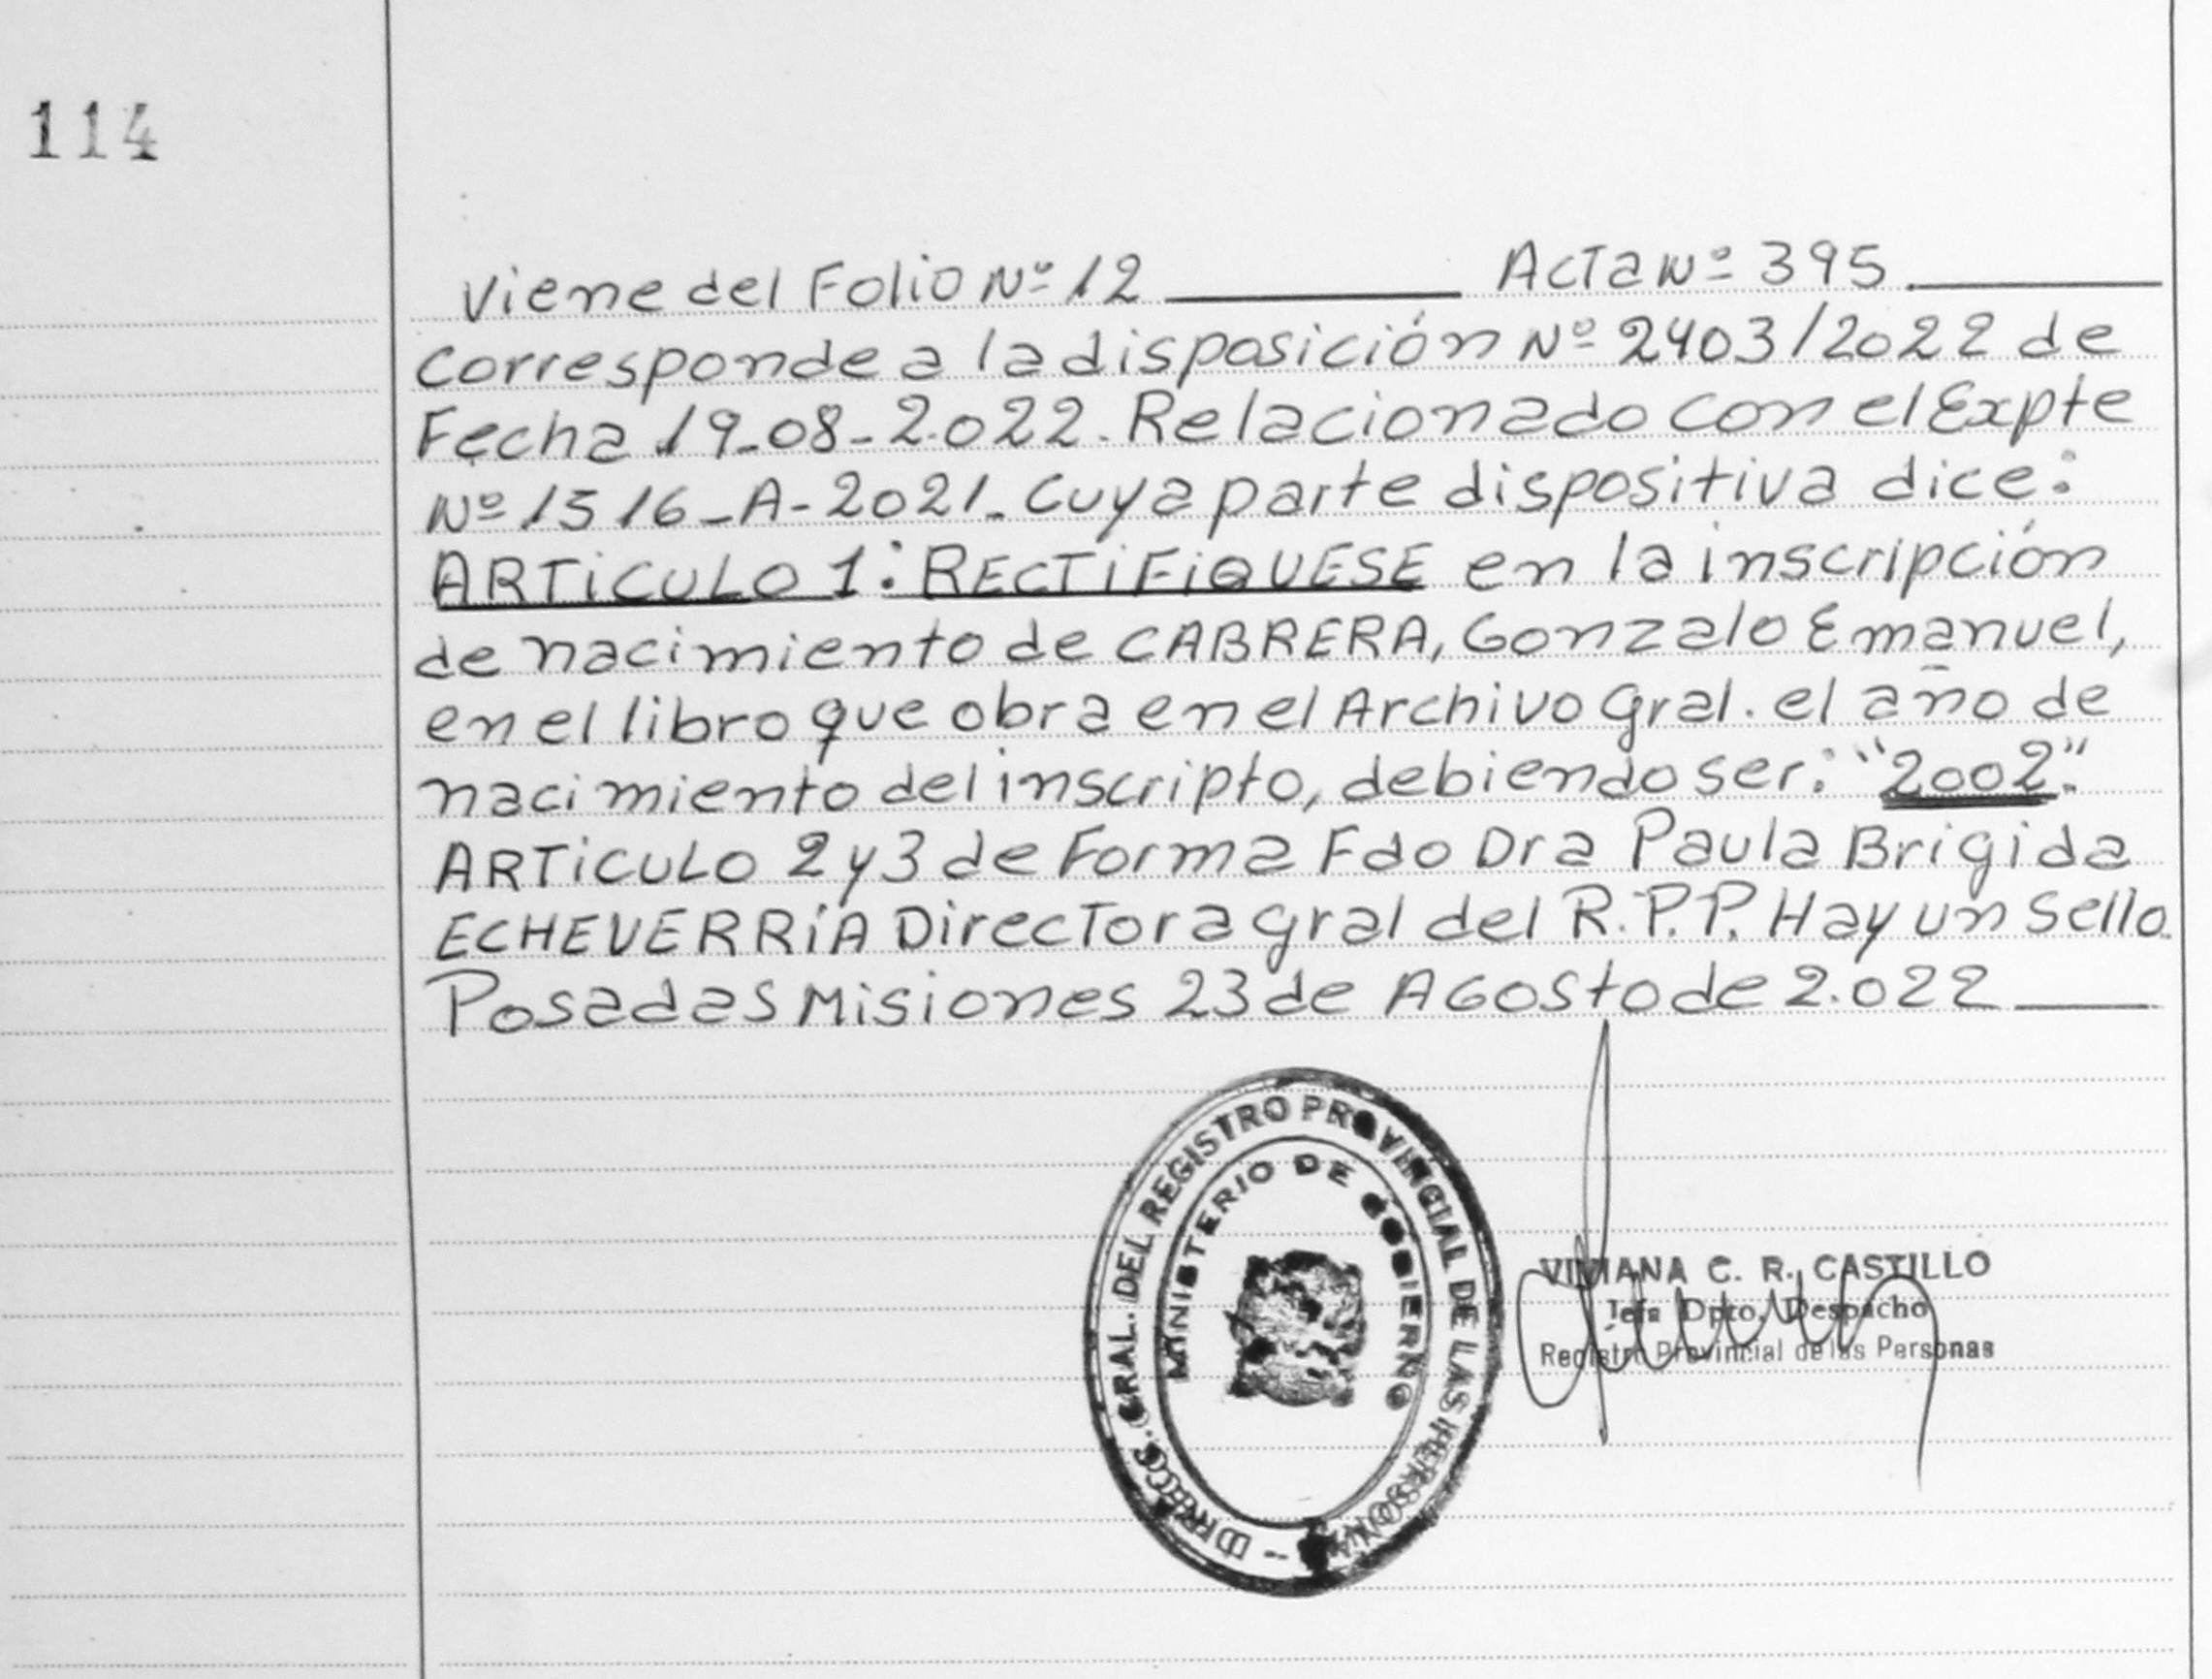 114
Viene del Folio Nº 12 ______ Acta Nº 395 ______
Corresponde a la disposición Nº 2403/2022 de
Fecha 19-08-2.022. Relacionado con el Expte
Nº 1516-A-2021. Cuya parte dispositiva dice:
ARTiCULO 1: RECTiFiQUESE en la inscripción
de nacimiento de CABRERA, Gonzalo Emanuel,
en el libro que obra en el Archivo Gral. el año de
nacimiento del inscripto, debiendo ser: "2002".
ARTiCULO 2 y 3 de Forma Fdo Dra Paula Brigida
ECHEVERRíA Directora gral del R.P.P. Hay un Sello.
Posadas Misiones 23 de AGosto de 2.022 ______
DIRECC. GRAL. DEL REGISTRO PROVINCIAL DE LAS PERSONAS -
MINISTERIO DE GOBIERNO
VIVIANA C. R. CASTILLO
Jefa Dpto. Despacho
Registro Provincial de las Personas